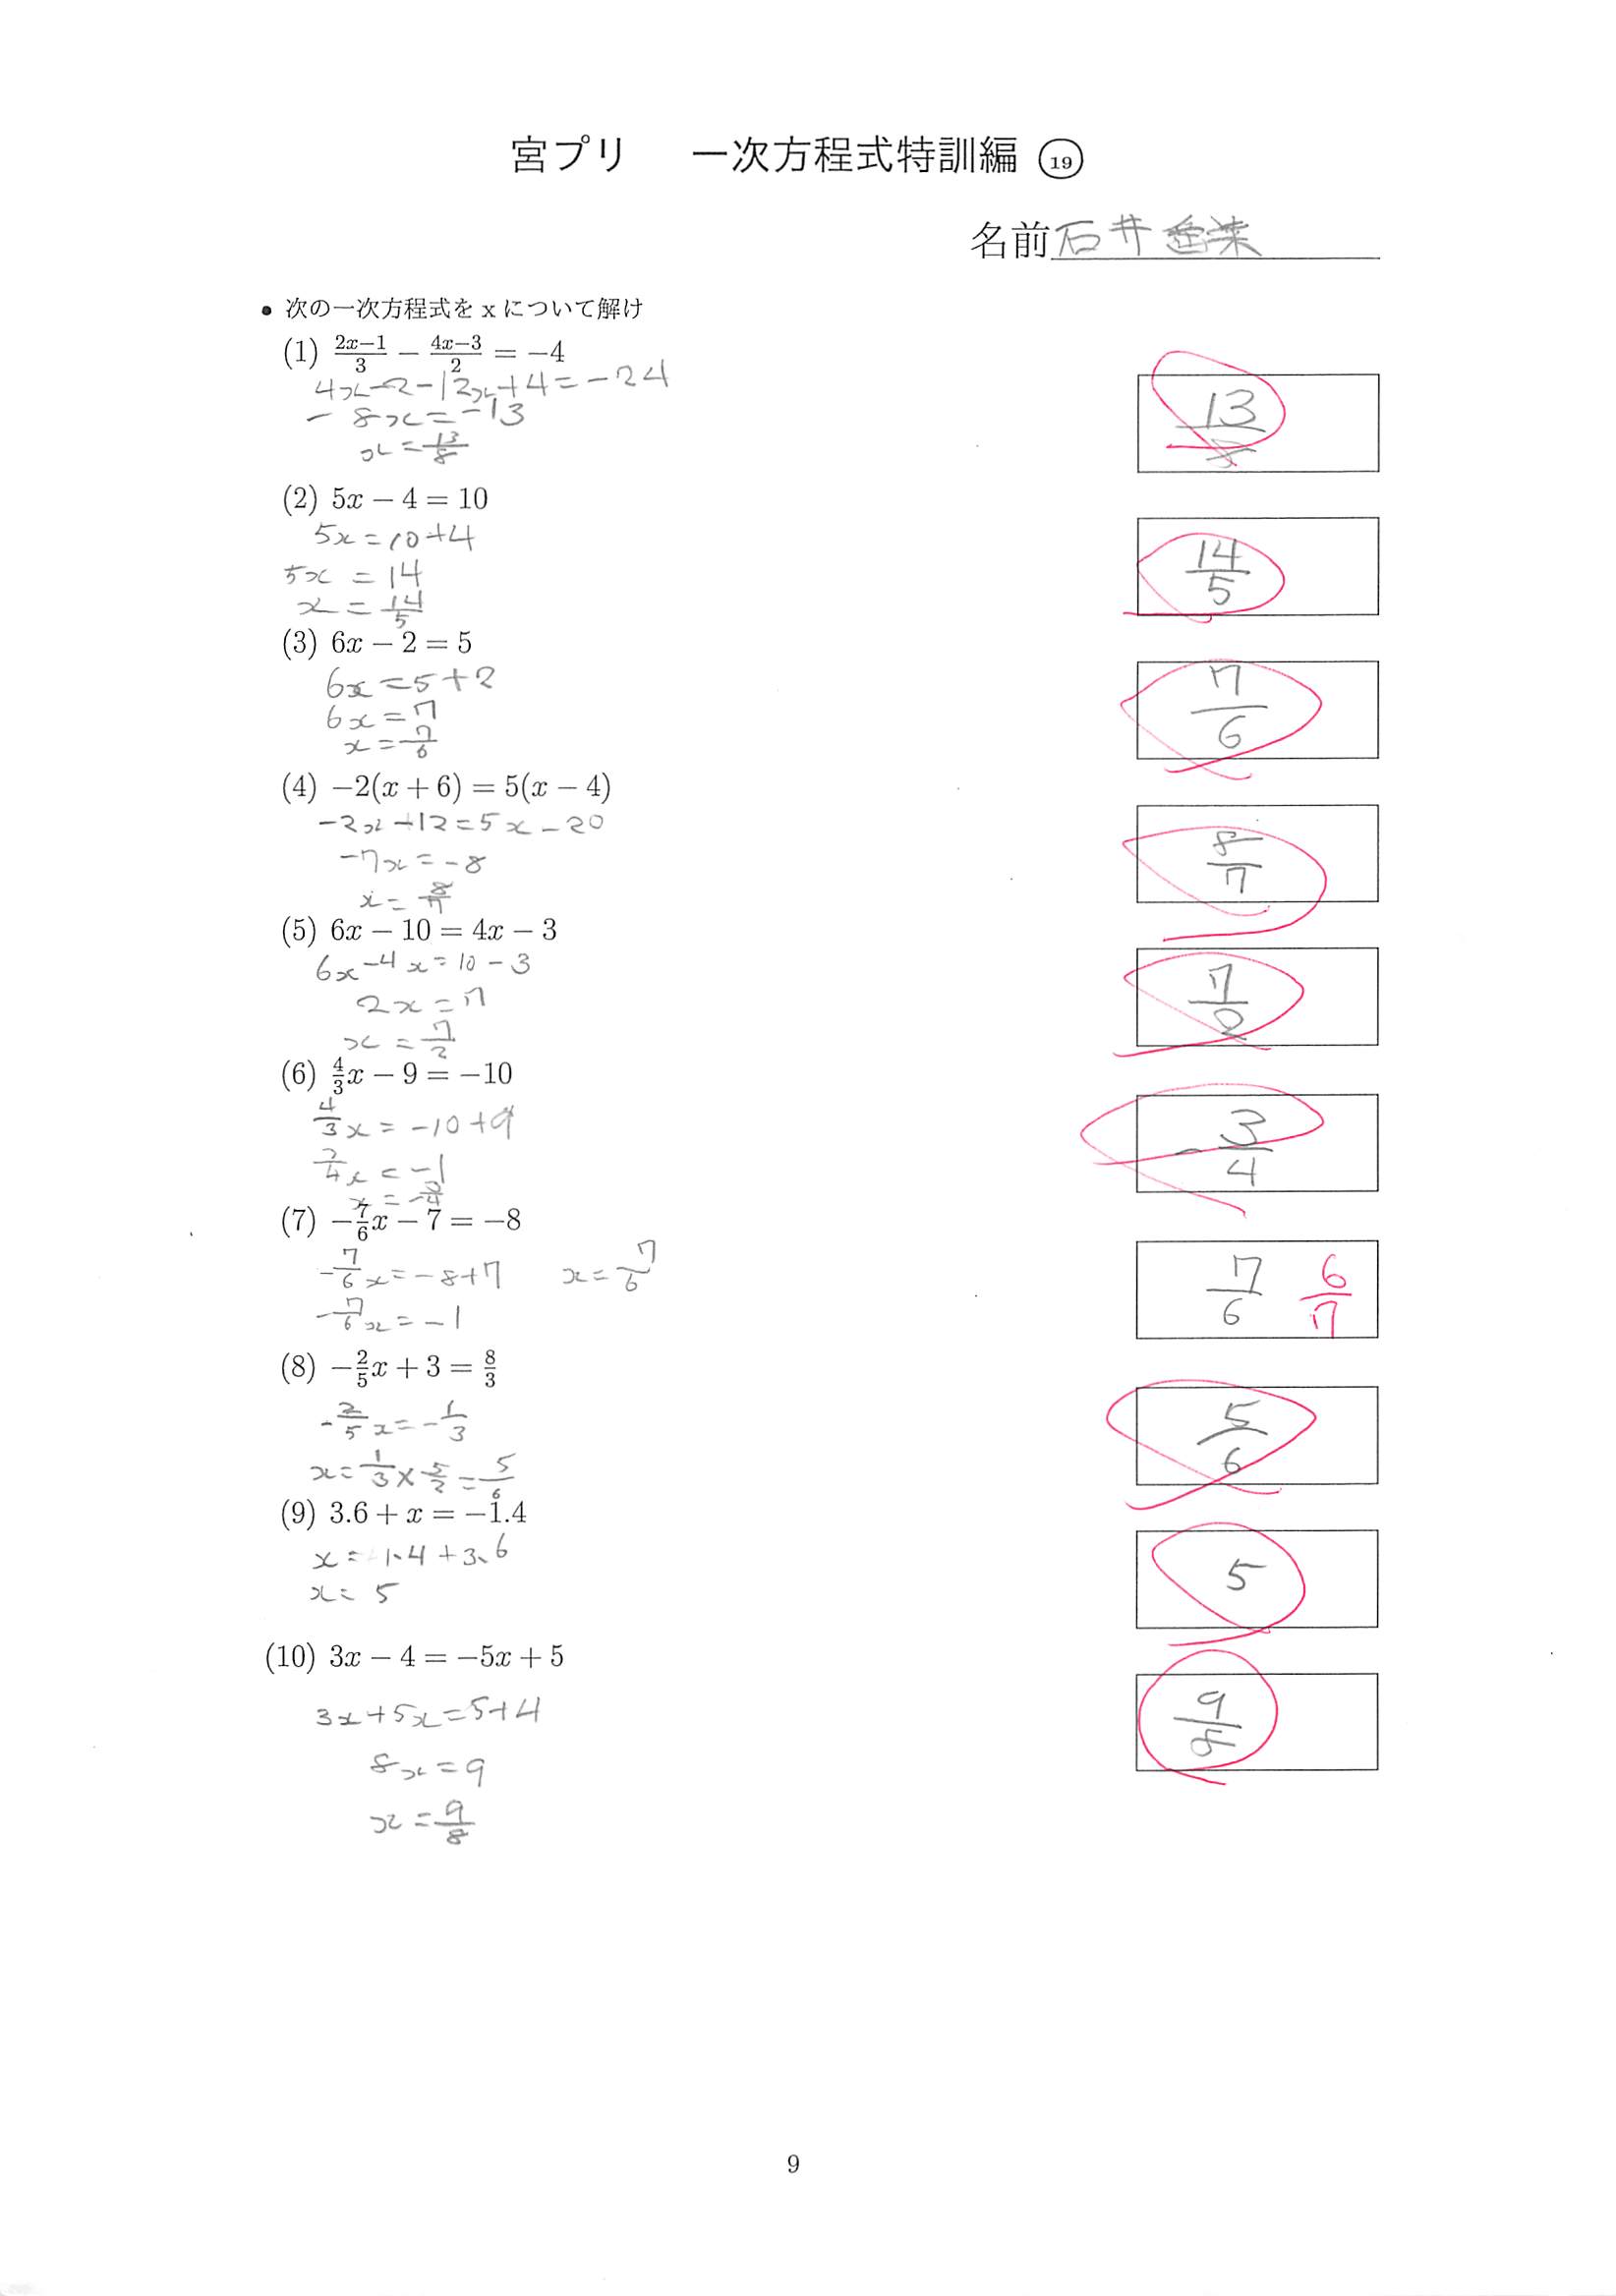 宮プリ 一次方程式特訓編 ⑲
名前 石井
● 次の一次方程式を x について解け
(1) \frac{2x-1}{3} − \frac{4x-3}{2} = −4
4x-2-12x+4=-24
- 8x=-13
x=\frac{13}{8}
\frac{13}{8}
(2) 5x − 4 = 10
5x=10+4
5x = 14
x = \frac{14}{5}
\frac{14}{5}
(3) 6x − 2 = 5
6x=5+2
6x=7
x=\frac{7}{6}
\frac{7}{6}
(4) −2(x + 6) = 5(x − 4)
-2x+12=5x-20
-7x=-8
x=\frac{8}{7}
\frac{8}{7}
(5) 6x − 10 = 4x − 3
6x-4x=10-3
2x=7
x=\frac{7}{2}
\frac{7}{2}
(6) \frac{4}{3}x − 9 = −10
\frac{4}{3}x=-10+9
x=-\frac{3}{4}
-\frac{3}{4}
(7) −\frac{7}{6}x − 7 = −8
-\frac{7}{6}x=-8+7 x=\frac{7}{6}
-\frac{7}{6}x=-1
\frac{7}{6} \frac{6}{7}
(8) −\frac{2}{5}x + 3 = \frac{8}{3}
-\frac{2}{5}x=-\frac{1}{3}
x=\frac{1}{3}×\frac{5}{2}=\frac{5}{6}
\frac{5}{6}
(9) 3.6 + x = −1.4
x= 1.4+3.6
x= 5
5
(10) 3x − 4 = −5x + 5
3x+5x=5+4
8x=9
x=\frac{9}{8}
\frac{9}{8}
9